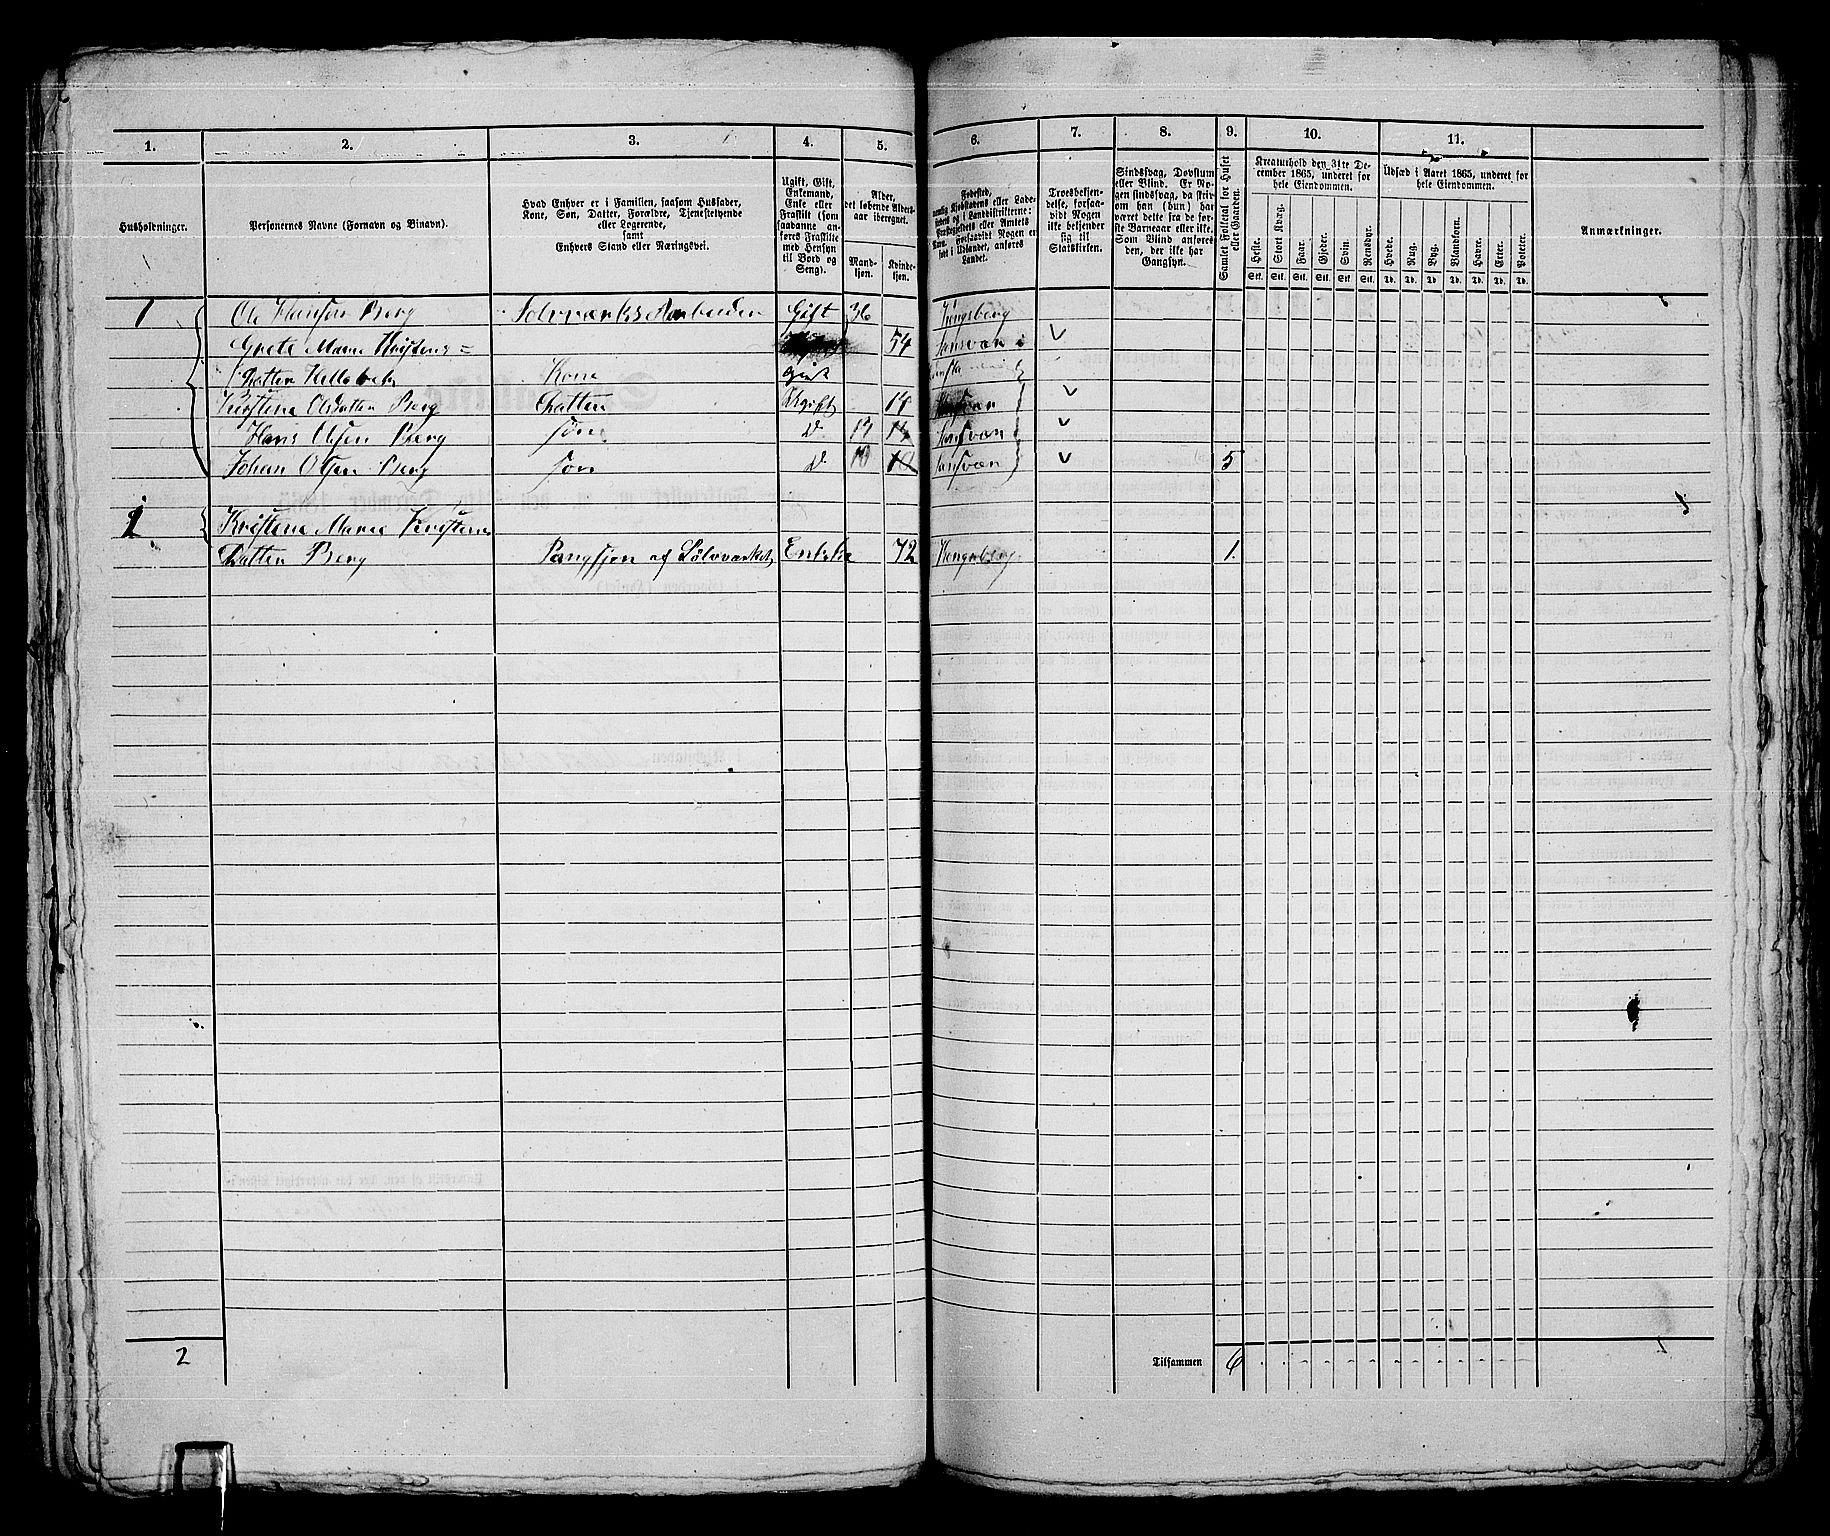 1. 2. 3. 4. 5. 6. 7. 8. 9. 10. 11.
Husholdninger.
Personernes Navne (Fornavn og Binavn).
Hvad Enhver er i Familien, saasom Husfader,
Kone, Søn, Datter, Forældre, Tjenestetyende
eller Logerende,
samt
Enhvers Stand eller Næringsvei.
Ugift, Gift,
Enkemand,
Enke eller
Fraskilt (som
saadanne an-
føres Fraskilte
med Hensyn
til Bord og
Seng).
Alder,
det løbende Alders-
aar iberegnet.
Mand-
kjøn.
Kvinde-
kjøn.
Fødested,
nemlig Kjøbstadens eller Lade-
stedets og i Landdistrikterne:
Præstegjeldets eller Amtets
Navn. Forsaavidt Nogen er
født i Udlandet, anføres
Landet.
Troesbekjen-
delse, forsaa-
vidt Nogen
ikke bekjender
sig til
Statskirken.
Sindssvag, Døvstum
eller Blind. Er No-
gen sindssvag, da skriv
om han (hun) har
været dette fra de før-
ste Barneaar eller ikke.
Som Blind anføres
den, der ikke har
Gangsyn.
Samlet Folketal for Huset
eller Gaarden.
Kreaturhold den 31te De-
cember 1865, underet for
hele Eiendommen.
Heste. Stort Kvæg. Faar. Gjeder. Svin. Rensdyr.
Stk. Stk. Stk. Stk. Stk. Stk.
Udsæd i Aaret 1865, underet for
hele Eiendommen.
Hvede. Rug. Byg. Blandkorn. Havre. Erter. Poteter.
Td. Td. Td. Td. Td. Td. Td.
Anmærkninger.
1 Ole Hansen Berg Solvværks Arbeider Gift 36 Kongsberg
Grete Marie Kristens= 54 Sansvær
Datter Kone Gift
Kirstine Olsdatter Berg Datter Ugift 14
Hans Olsen Berg Søn D. 14 14 Sansvær
Johan Olsen Berg Søn D. 10 10 Sansvær 5
2 Kristine Marie Kristens
Datter Berg Pangsjon af Sölvværket Enke 72 Kongsberg 1.
2 Tilsammen 6